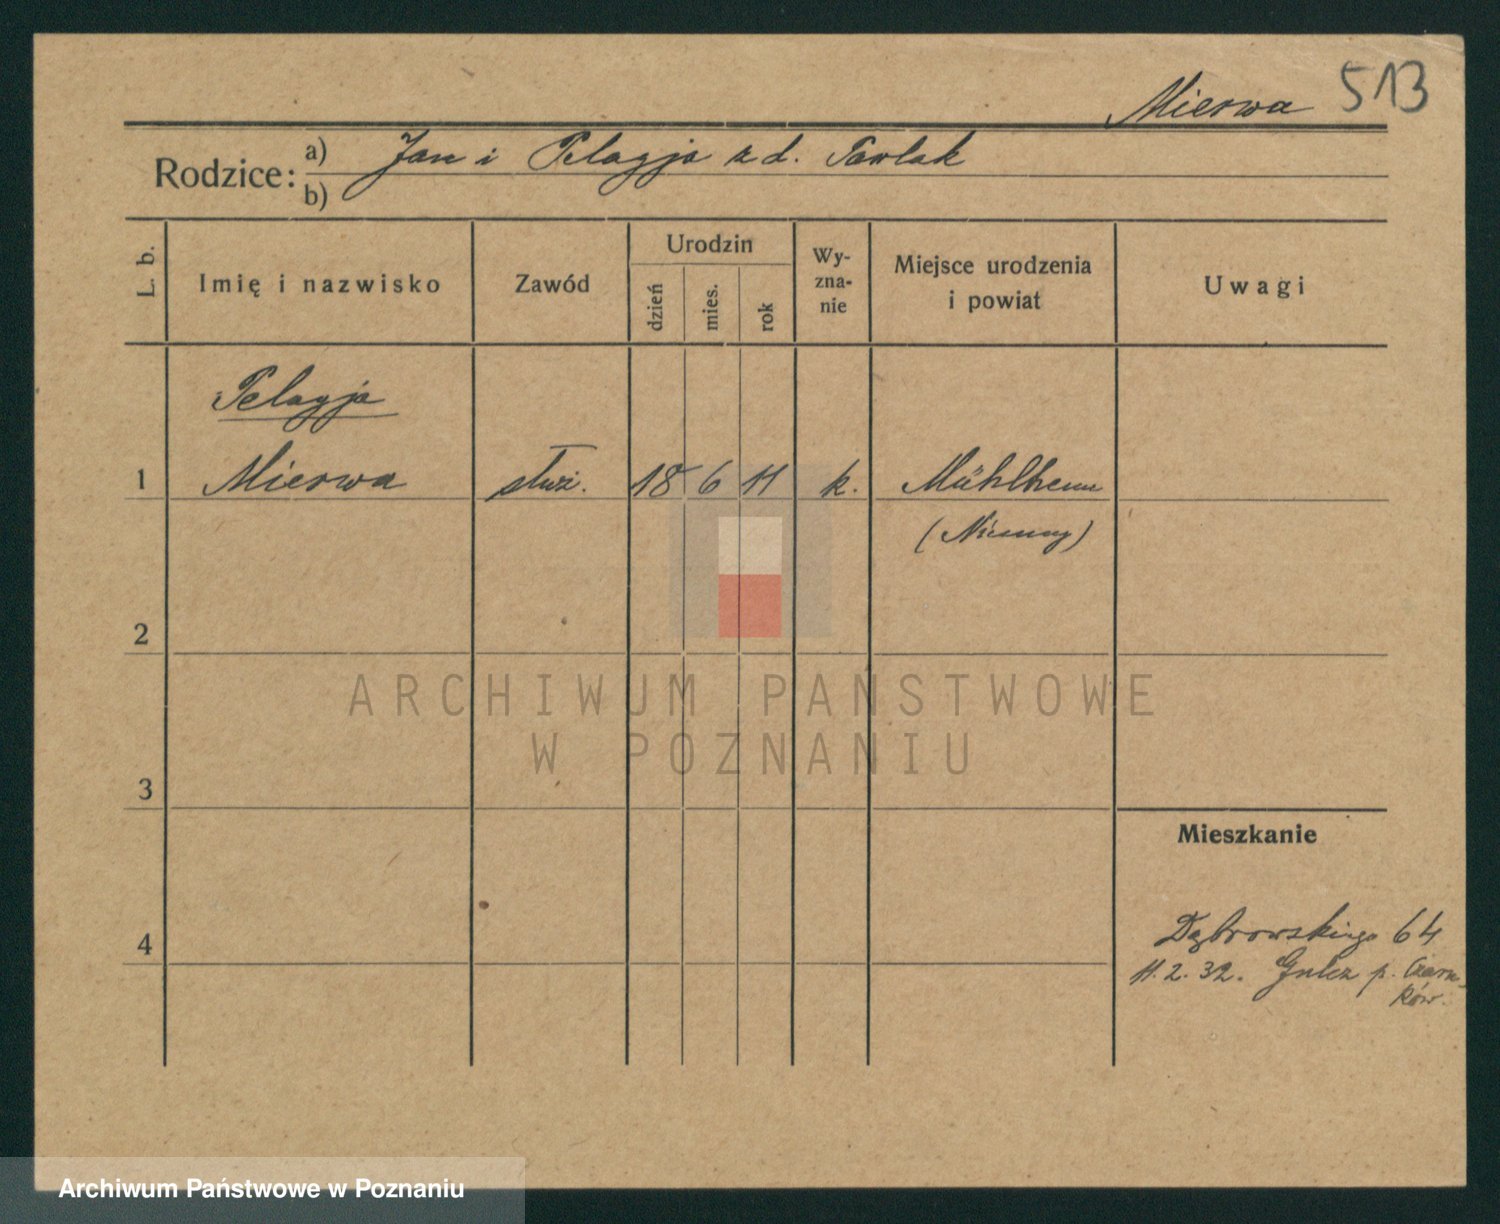 Mierwa 513
Rodzice: a) Jan i Pelagja z d. Pawlak
b)
L. b.
Imię i nazwisko
Zawód
Urodzin
dzień
mies.
rok
Wy-
zna-
nie
Miejsce urodzenia
i powiat
Uwagi
Pelagja
1 Mierwa służ. 18 6 11 k. Mühlheim
(Niemcy)
2
3
4
Mieszkanie
Dąbrowskiego 64
11.2.32. Gulcz p. Czarn-
ków.
ARCHIWUM PAŃSTWOWE
W POZNANIU
Archiwum Państwowe w Poznaniu